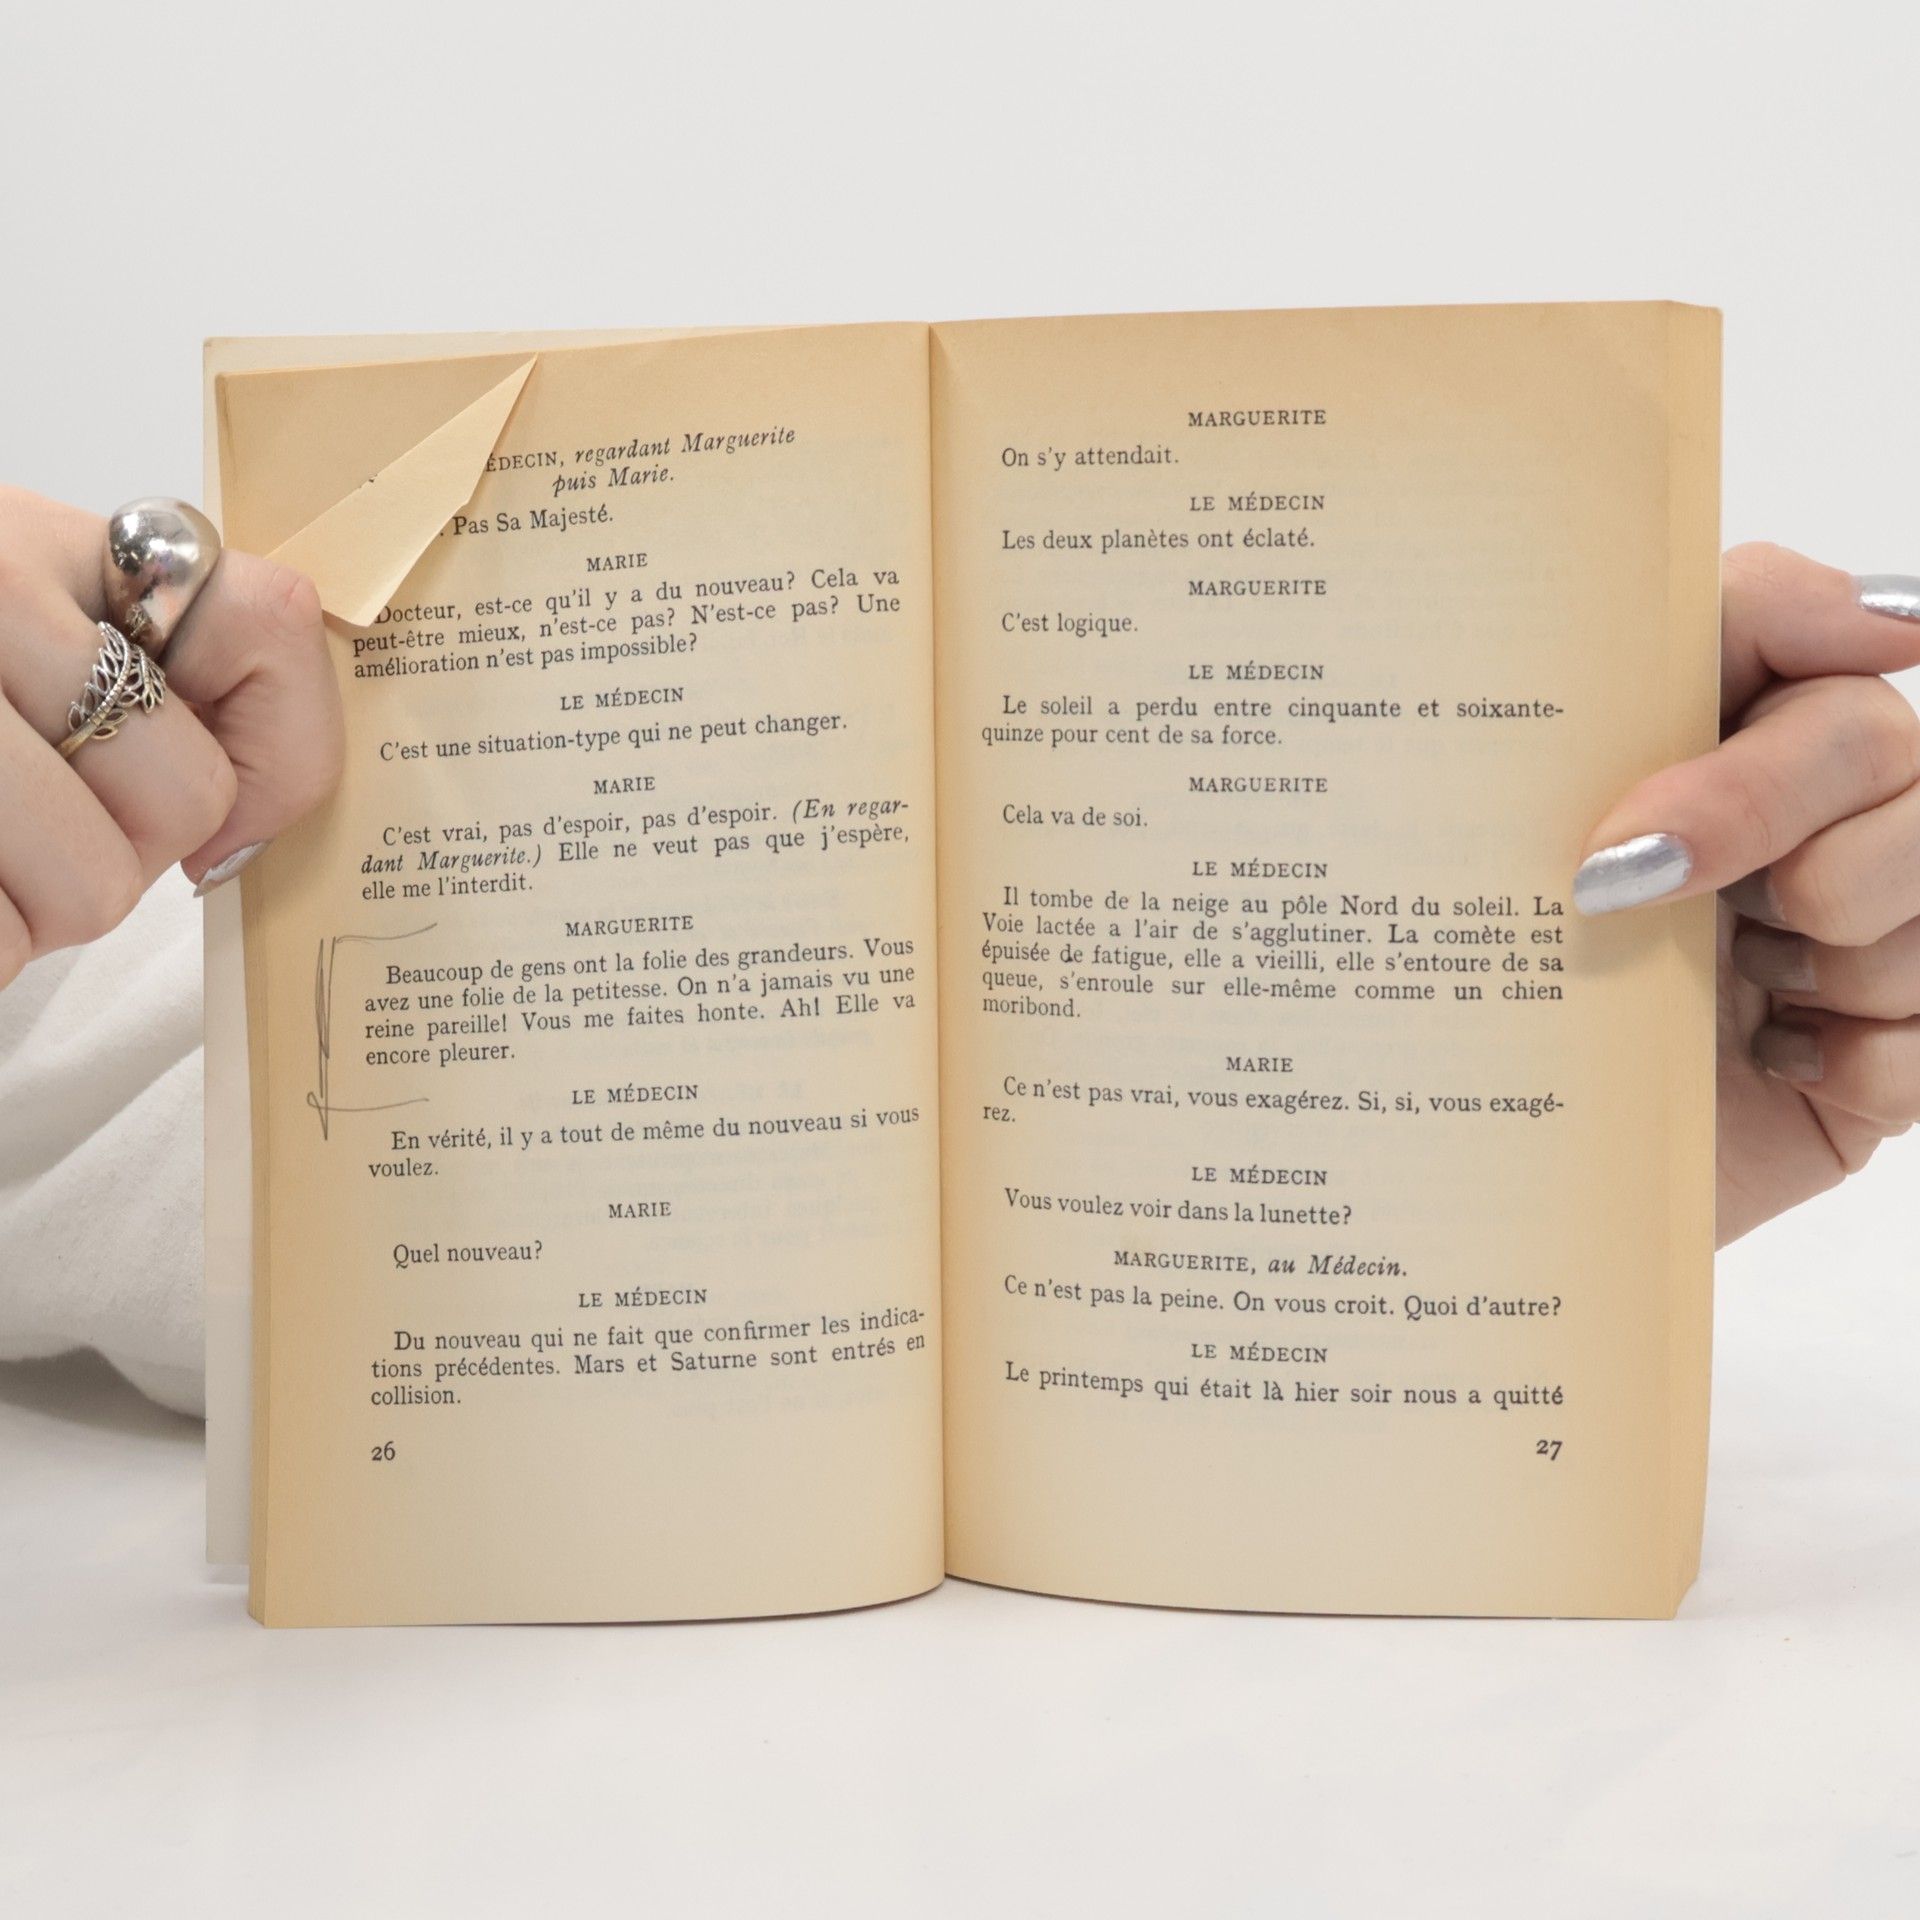 ÉDECIN, regardant Marguerite
puis Marie.
. Pas Sa Majesté.
MARIE
Docteur, est-ce qu'il y a du nouveau? Cela va
peut-être mieux, n'est-ce pas? N'est-ce pas? Une
amélioration n'est pas impossible?
LE MÉDECIN
C'est une situation-type qui ne peut changer.
MARIE
C'est vrai, pas d'espoir, pas d'espoir. (En regar-
dant Marguerite.) Elle ne veut pas que j'espère,
elle me l'interdit.
MARGUERITE
Beaucoup de gens ont la folie des grandeurs. Vous
avez une folie de la petitesse. On n'a jamais vu une
reine pareille! Vous me faites honte. Ah! Elle va
encore pleurer.
LE MÉDECIN
En vérité, il y a tout de même du nouveau si vous
voulez.
MARIE
Quel nouveau?
LE MÉDECIN
Du nouveau qui ne fait que confirmer les indica-
tions précédentes. Mars et Saturne sont entrés en
collision.
26
MARGUERITE
On s'y attendait.
LE MÉDECIN
Les deux planètes ont éclaté.
MARGUERITE
C'est logique.
LE MÉDECIN
Le soleil a perdu entre cinquante et soixante-
quinze pour cent de sa force.
MARGUERITE
Cela va de soi.
LE MÉDECIN
Il tombe de la neige au pôle Nord du soleil. La
Voie lactée a l'air de s'agglutiner. La comète est
épuisée de fatigue, elle a vieilli, elle s'entoure de sa
queue, s'enroule sur elle-même comme un chien
moribond.
MARIE
Ce n'est pas vrai, vous exagérez. Si, si, vous exagé-
rez.
LE MÉDECIN
Vous voulez voir dans la lunette?
MARGUERITE, au Médecin.
Ce n'est pas la peine. On vous croit. Quoi d'autre?
LE MÉDECIN
Le printemps qui était là hier soir nous a quitté
27